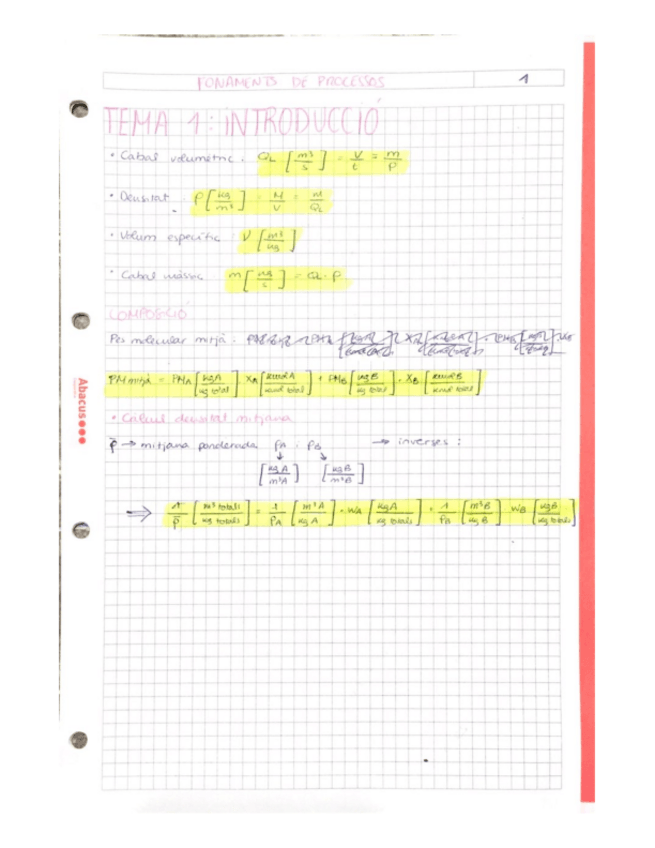 FONAMENTS DE PROCESSOS 1
TEMA 1: INTRODUCCIÓ
• Cabal volumètric: QL [m³/s] = V/t = m/ρ
• Densitat: ρ [kg/m³] = M/V = m/QL
• Volum específic: V [m³/kg]
• Cabal màssic m [kg/s] = QL · ρ
COMPOSICIÓ
Pes molecular mitjà:
PM mitjà = PMA [kgA/kg total] XA [kmolA/kmol total] + PMB [kgB/kg total] · XB [kmolB/kmol total]
• Càlcul densitat mitjana
ρ̄ → mitjana ponderada ρA · ρB → inverses:
[kgA/m³A] [kgB/m³B]
⇒ 1/ρ̄ [m³ totals/kg totals] = 1/ρA [m³A/kgA] · WA [kgA/kg totals] + 1/ρB [m³B/kgB] WB [kgB/kg totals]
Abacus